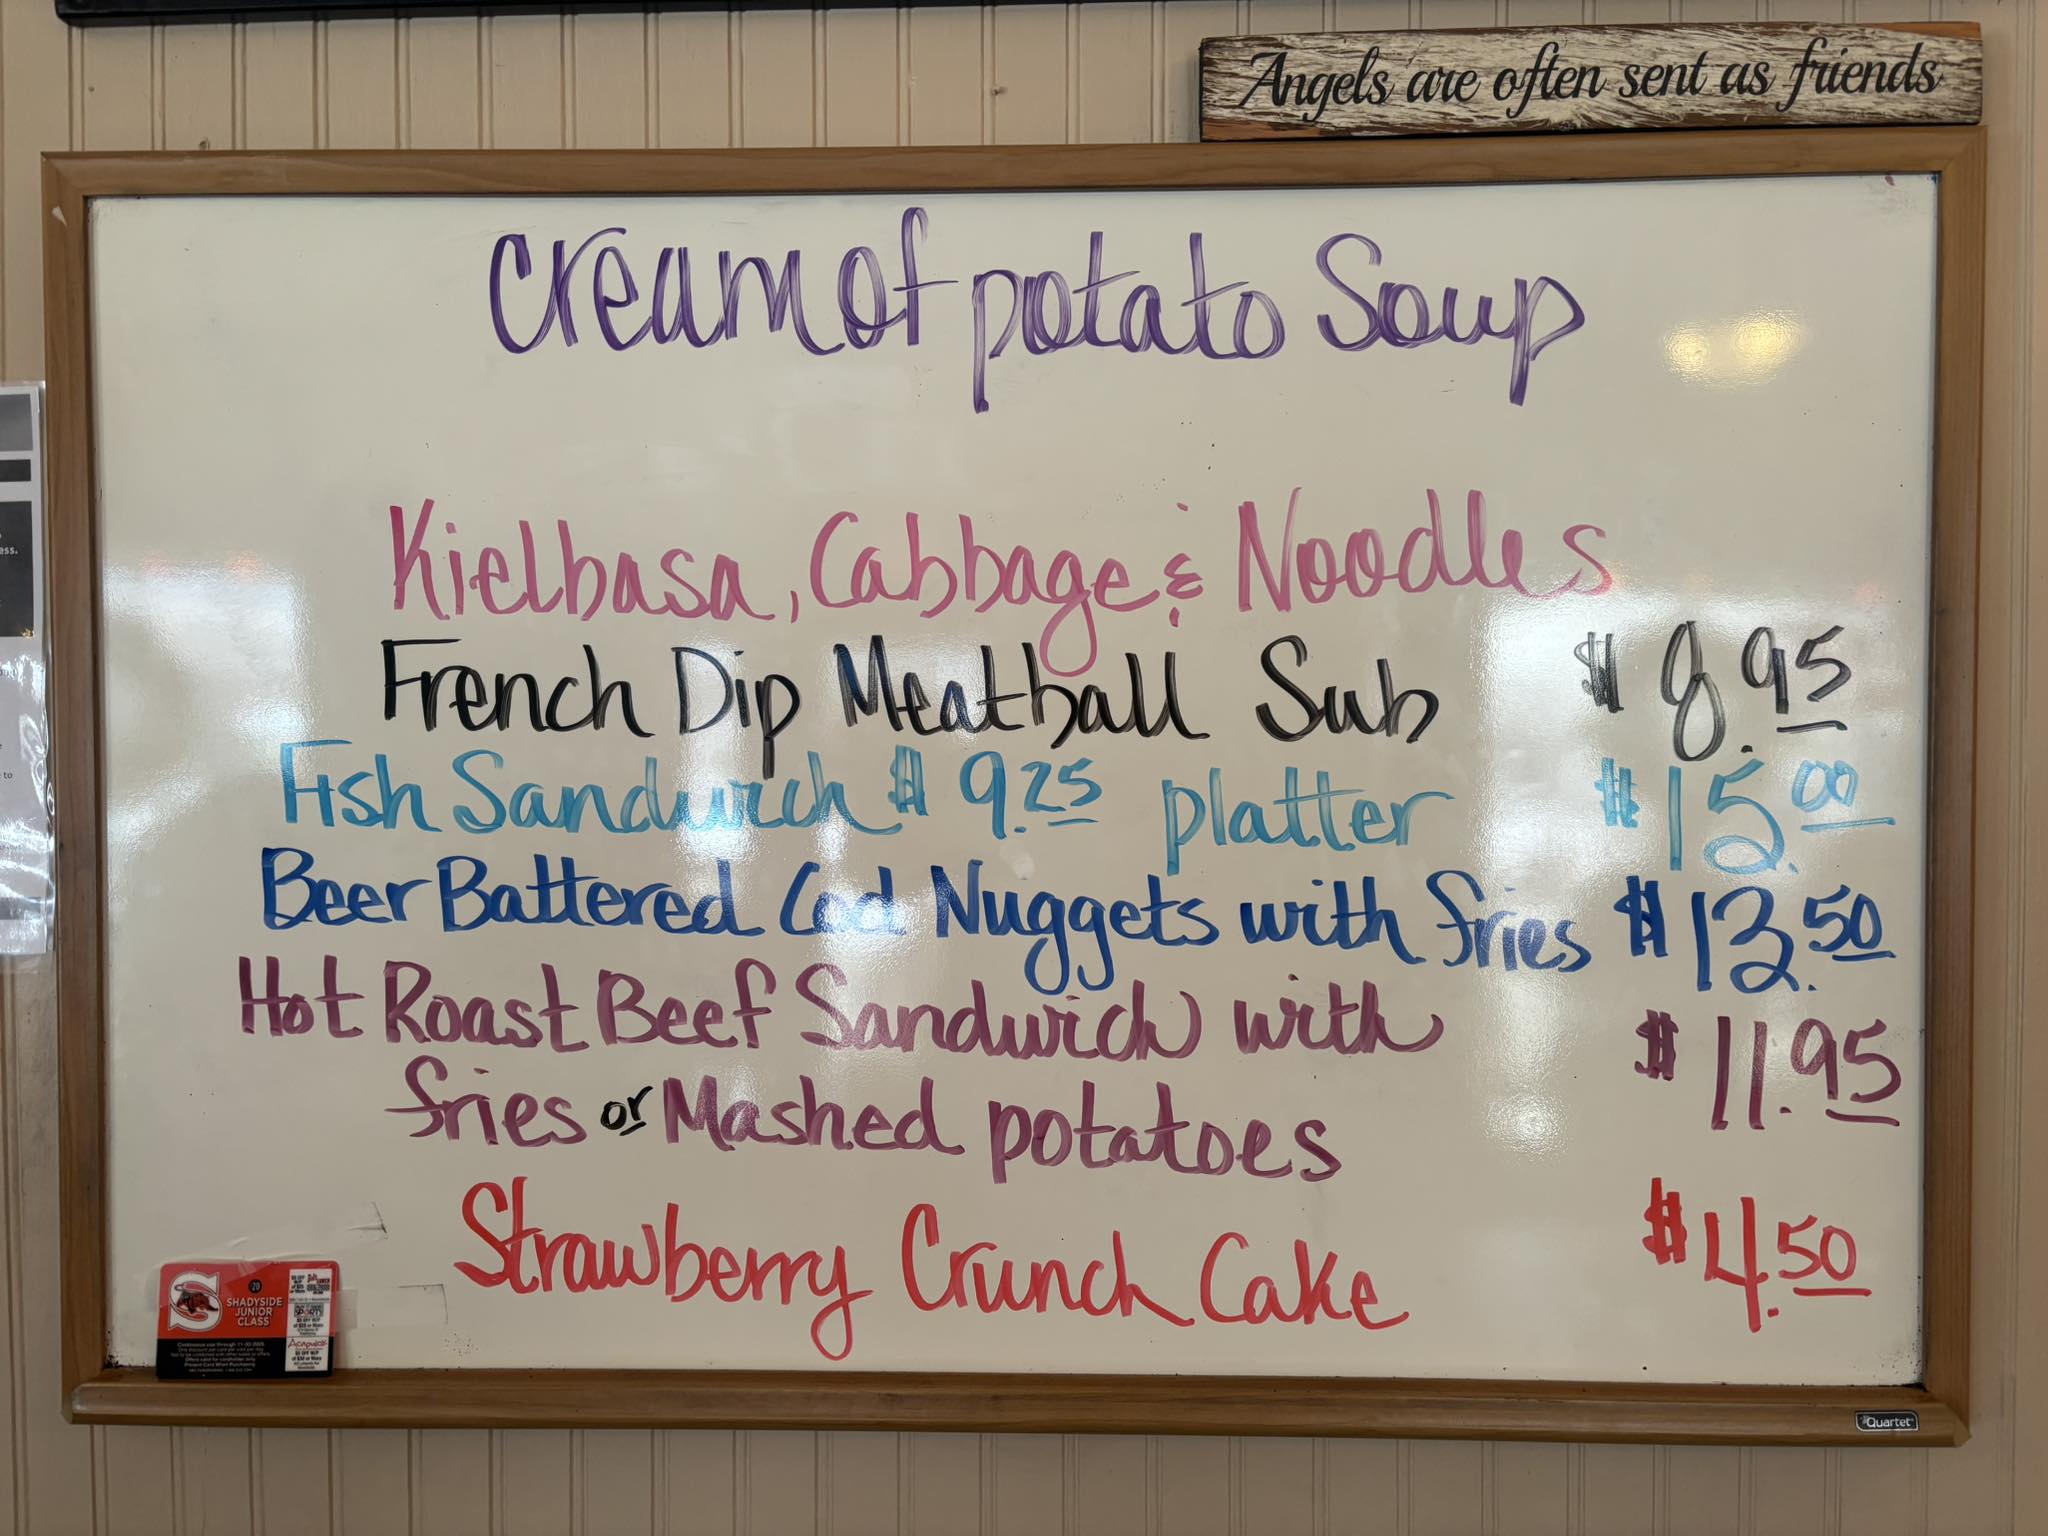 Angels are often sent as friends
Cream of potato Soup
Kielbasa, Cabbage & Noodles
French Dip Meatball Sub $8.95
Fish Sandwich $9.25 platter $15.00
Beer Battered Cod Nuggets with fries $13.50
Hot Roast Beef Sandwich with $11.95
fries or Mashed potatoes
Strawberry Crunch Cake $4.50
S
$20
SHADYSIDE
JUNIOR
CLASS
Quartet
ess.
to